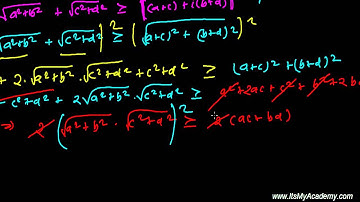 √a²+b² + √c²+d² ≥ |(a+c)+i(b+d)|
(√a²+b² + √c²+d²)² ≥ (√(a+c)²+(b+d)²)²
+ 2·√a²+b²·√c²+d² + c²+d² ≥ (a+c)²+(b+d)²
c²+d² + 2√a²+b²·√c²+d² ≥ a²+2ac+c²+b²+2b
⇒ 2(√a²+b²·√c²+d²)² ≥ 2(ac+bd)
www.ItsMyAcademy.com